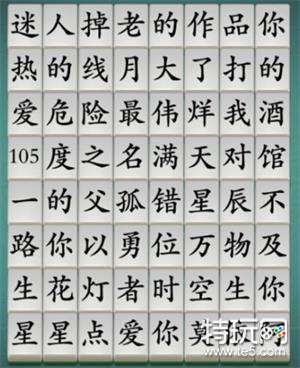 迷人掉老的作品你
热的线月大了打的
爱危险最伟烊我酒
105度之名满天对馆
一的父孤错星辰不
路你以勇位万物及
生花灯者时空生你
星星点爱你莫
特玩网
www.te5.com